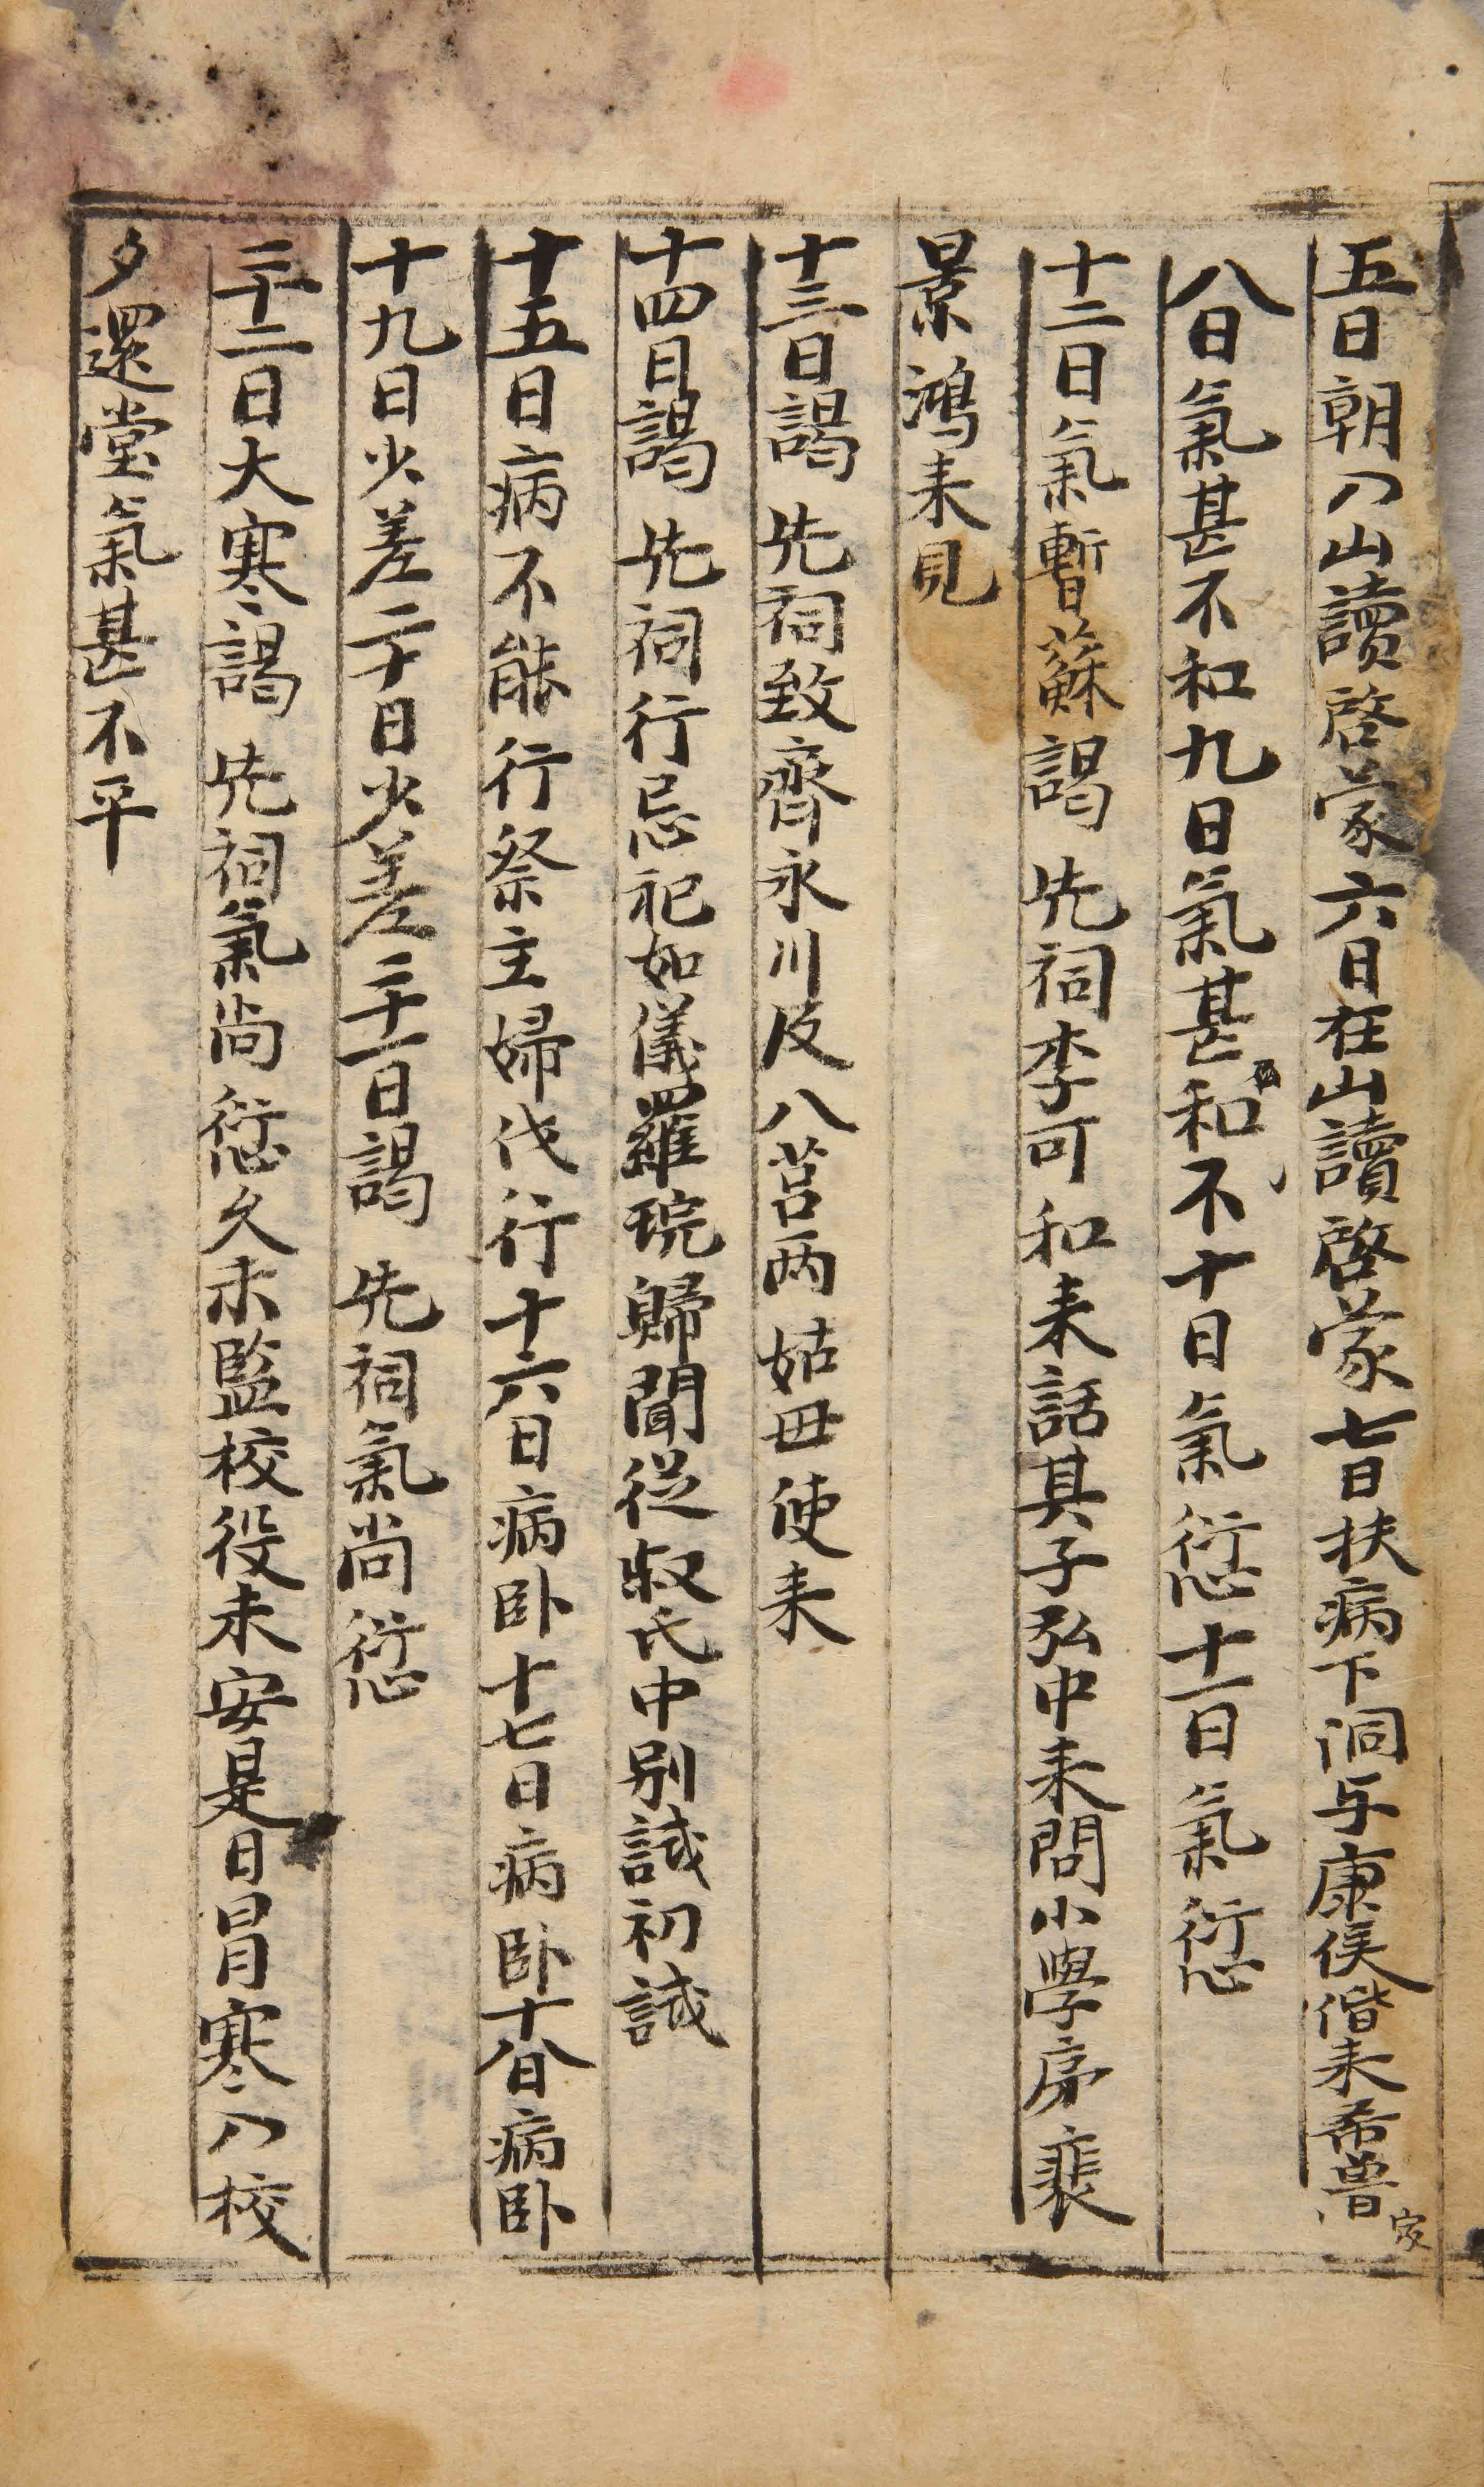 五日朝入山讀啓蒙六日在山讀啓蒙七日扶病下洞与康侯偕来希魯家
八日氣甚不和九日氣甚和不十日氣愆十一日氣愆
十二日氣暫蘇謁 先祠李可和来話其子弘中来問小學序裴
景鴻来見
十三日謁 先祠致齊永川及八莒两姑母使来
十四日謁 先祠行忌祀如儀羅琓歸聞從叔氏中別諴初諴
十五日病不能行祭主婦代行十六日病卧十七日病卧十八日病卧
十九日少差二十日少差二十一日謁 先祠氣尚愆
二十二日大寒謁 先祠氣尚愆久未監校役未安是日冒寒入校
夕還堂氣甚不平